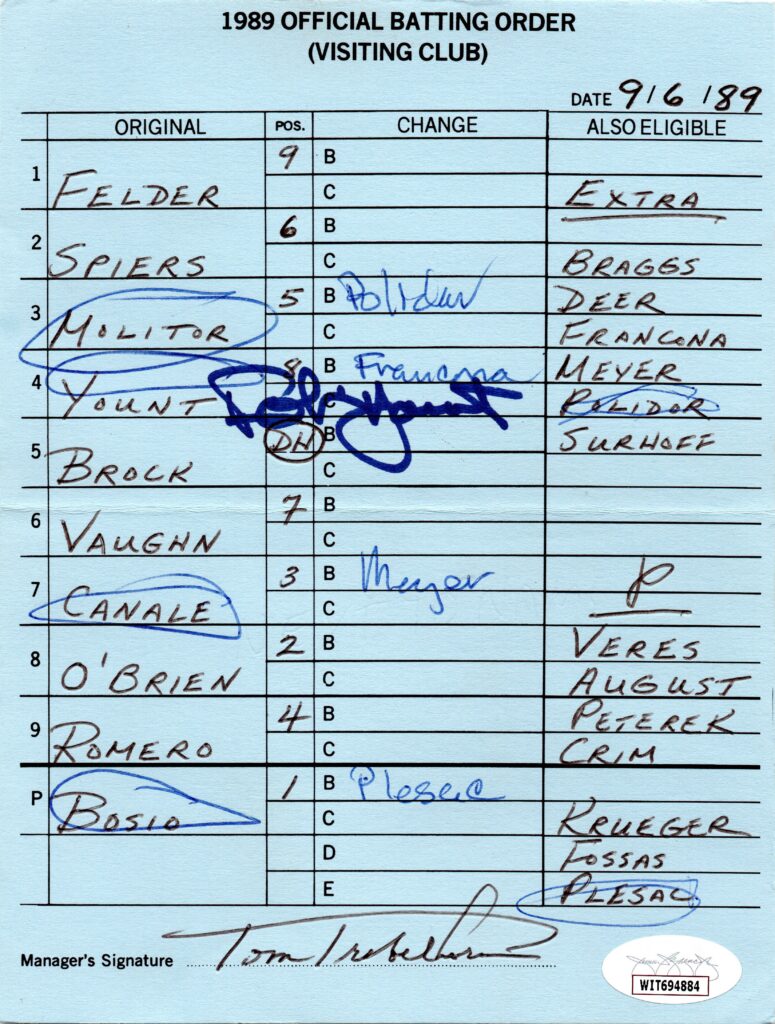 1989 OFFICIAL BATTING ORDER
(VISITING CLUB)
DATE 9/6/89
ORIGINAL POS. CHANGE ALSO ELIGIBLE
1 FELDER 9 B
C EXTRA
2 SPIERS 6 B
C BRAGGS
3 MOLITOR 5 B Polidor DEER
C FRANCONA
4 YOUNT 8 B Francona MEYER
C Robin Yount POLIDOR
5 BROCK DH B SURHOFF
C
6 VAUGHN 7 B
C
7 CANALE 3 B Meyer P
C
8 O'BRIEN 2 B VERES
C AUGUST
9 ROMERO 4 B PETEREK
C CRIM
P BOSIO 1 B Plesac
C KRUEGER
D FOSSAS
E PLESAC
Manager's Signature Tom Trebelhorn
WIT694884